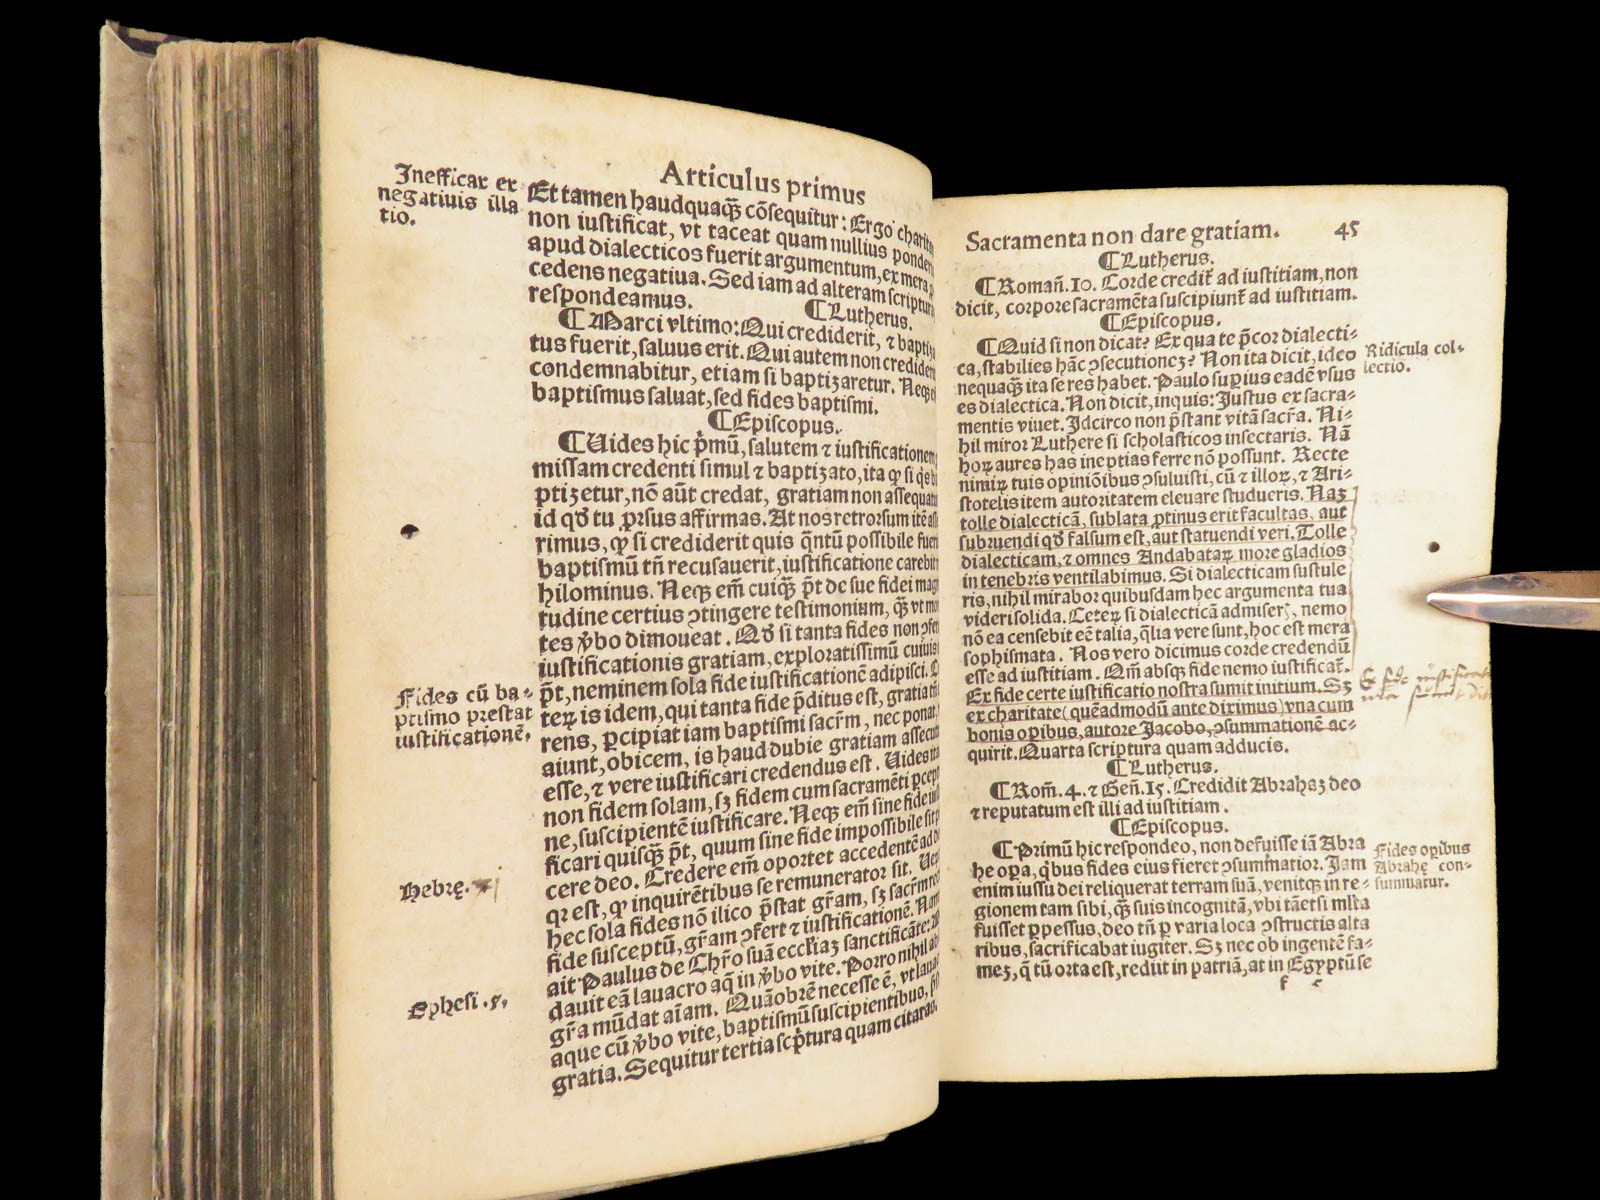 Articulus primus
Inefficax ex
negatiuis illa
tio.
Et tamen haudquaq̃ cõsequitur: Ergo
non iustificat, vt taceat quam nullius
apud dialecticos fuerit argumentum, ex mera
cedens negatiua. Sed iam ad alteram
respondeamus.
¶ Lutherus.
¶ Marci vltimo: Qui crediderit, ⁊
tus fuerit, saluus erit. Qui autem non
condemnabitur, etiam si baptizaretur.
baptismus saluat, sed fides baptismi.
¶ Episcopus.
¶ Uides hic p̃mũ, salutem ⁊ iustificationem
missam credenti simul ⁊ baptizato, ita ꝙ si
ptizetur, nõ aũt credat, gratiam non
id qđ tu ꝓrsus affirmas. At nos retrorsum itẽ
rimus, ꝙ si crediderit quis q̃ntũ possibile
baptismũ tñ recusauerit, iustificatione
hilominus. Neqꝫ em̃ cuiq̃ p̃t de sue fidei
tudine certius ꝯtingere testimonium, q̃ vt
tes v̄bo dimoueat. Qđ si tanta fides non
iustificationis gratiam, exploratissimũ
p̃t, neminem sola fide iustificationẽ adipisci.
Fides cũ ba-
ptismo prestat
iustificationẽ.
terꝝ is idem, qui tanta fide p̃ditus est, gratia
rens, ꝑcipiat iam baptismi sacr̃m, nec ponat,
aiunt, obicem, is haud dubie gratiam
esse, ⁊ vere iustificari credendus est. Uides
non fidem solam, sꝫ fidem cum sacramẽti
ne, suscipientẽ iustificare. Neqꝫ em̃ sine fide
ficari quisq̃ p̃t, quum sine fide impossibile sit
Hebrę. xi
cere deo. Credere em̃ oportet accedentẽ
qꝛ est, ꝙ inquirẽtibus se remunerator sit.
hec sola fides nõ ilico p̃stat gr̃am, sꝫ sacr̃m
fide susceptũ, gr̃am ꝯfert ⁊ iustificationẽ.
ait Paulus de Chr̃o suã ecclĩaꝫ sanctificãte:
Ephesi. 5.
dauit eã lauacro aq̃ in v̄bo vite. Porro nihil
gr̃a mũdat aĩam. Quãobrẽ necesse ẽ, vt
aque cũ v̄bo vite, baptismũ suscipientibus,
gratia. Sequitur tertia scp̃tura quam citaras.
Sacramenta non dare gratiam. 45
¶ Lutherus.
¶ Romañ. 10. Corde credit̃ ad iustitiam, non
dicit, corpore sacramẽta suscipiunt̃ ad iustitiam.
¶ Episcopus.
¶ Quid si non dicat? Ex qua te p̃cor dialecti-
Ridicula col-
lectio.
ca, stabilies hãc ꝯsecutioneꝫ? Non ita dicit, ideo
nequaq̃ ita se res habet. Paulo suꝑius eadẽ vsus
es dialectica. Non dicit, inquis: Justus ex sacra-
mentis viuet. Idcirco non p̃stant vitã sacr̃a. Ni-
hil miror Luthere si scholasticos insectaris. Nã
hoꝝ aures has ineptias ferre nõ possunt. Recte
nimiꝝ tuis opiniõibus ꝯsuluisti, cũ ⁊ illoꝝ, ⁊ Ari-
stotelis item autoritatem eleuare studueris. Naꝫ
tolle dialecticã, sublata ꝓtinus erit facultas, aut
subruendi qđ falsum est, aut statuendi veri. Tolle
dialecticam, ⁊ omnes Andabataꝝ more gladios
in tenebris ventilabimus. Si dialecticam sustule
ris, nihil miraboꝛ quibusdam hec argumenta tua
videri solida. Ceteꝝ si dialecticã admiseris, nemo
nõ ea censebit eẽ talia, q̃lia vere sunt, hoc est mera
sophismata. Nos vero dicimus corde credendũ
esse ad iustitiam. Qm̃ absqꝫ fide nemo iustificat̃.
Ex fide certe iustificatio nostra sumit initium. Sꝫ
ex charitate (quẽadmodũ ante diximus) vna cum
bonis oꝑibus, autore Jacobo, ꝯsummationẽ ac-
quirit. Quarta scriptura quam adducis.
¶ Lutherus.
¶ Rom̃. 4. ⁊ Geñ. 15. Credidit Abrahaꝫ deo
⁊ reputatum est illi ad iustitiam.
¶ Episcopus.
¶ Primũ hic respondeo, non defuisse iã Abra
Fides oꝑibus
Abrahę con-
summatur.
he oꝑa, q̃bus fides eius fieret ꝯsummatior. Jam
enim iussu dei reliquerat terram suã, venitqꝫ in re-
gionem tam sibi, q̃ suis incognitã, vbi tãetsi ml̃ta
fuisset ꝑpessus, deo tñ ꝑ varia loca ꝯstructis alta
ribus, sacrificabat iugiter. Sꝫ nec ob ingentẽ fa-
meꝫ, q̃ tũ orta est, rediit in patriã, at in Egyptũ se
f